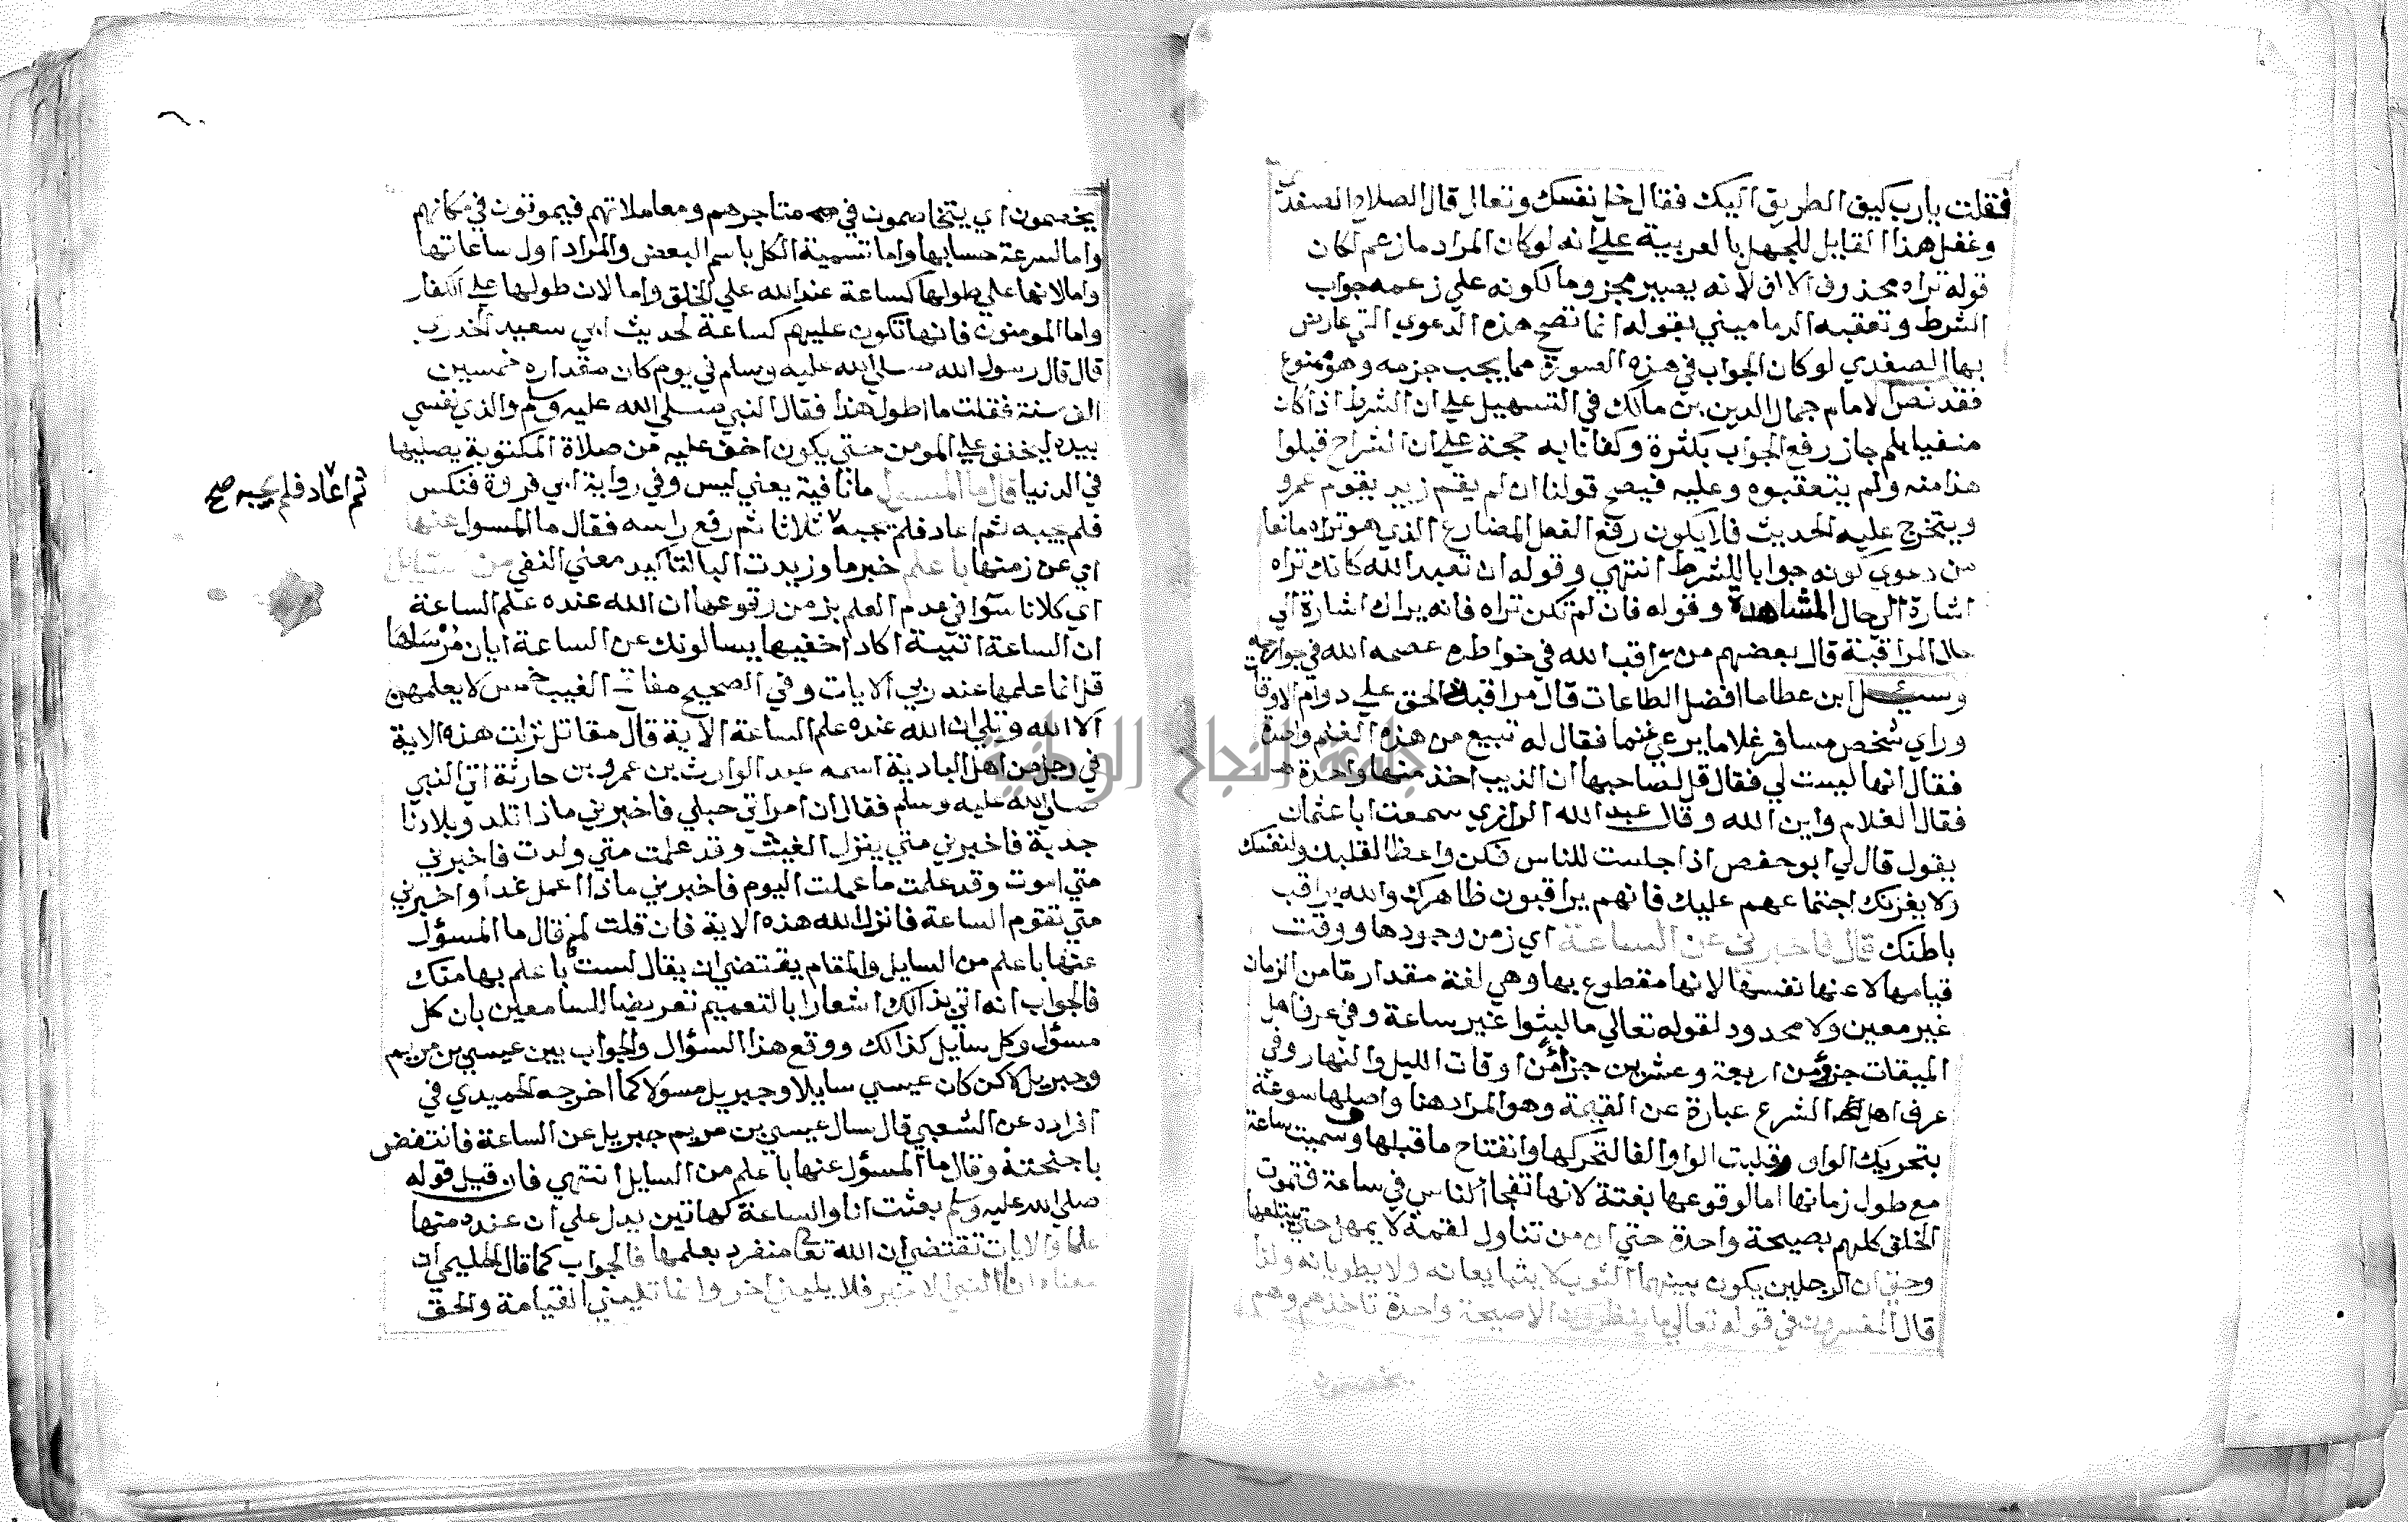 فقلت يارب كيف الطريق اليك فقال خل نفسك وتعال قال الصلاح الصفدي
وغفل هذا القايل للجهل بالعربية علي انه لوكان المراد مازعم لكان
قوله تراه محذوف الالف لانه يصير مجزوما لكونه علي زعمه جواب
الشرط وتعقبه الدماميني بقوله انما تصح هذه الدعوي التي عارض
بها الصفدي لوكان الجواب في هذه الصورة مما يجب جزمه وهو ممنوع
فقد نص الامام جمال الدين بن مالك في التسهيل علي ان الشرط اذا كان
منفيا بلم جاز رفع الجواب بكثرة وكفانا به حجة علي ان الشراح قبلوا
هذا منه ولم يتعقبوه وعليه فيصح قولنا ان لم يقم زيد يقوم عمرو
ويتخرج عليه الحديث فلا يكون رفع الفعل المضارع الذي هو تراه مانعا
من دعوي كونه جوابا للشرط انتهي وقوله ان تعبد الله كانك تراه
اشارة الي حال المشاهدة وقوله فان لم تكن تراه فانه يراك اشارة الي
حال المراقبة قال بعضهم من راقب الله في خواطره عصمه الله في جوارحه
وسيل ابن عطا ما افضل الطاعات قال مراقبة الحق علي دوام الاوقات
وراي شخص مسافر غلاما يرعي غنما فقال له تبيع من هذه الغنم واحدة
فقال انها ليست لي فقال قل لصاحبها ان الذيب اخذ منها واحدة
فقال الغلام واين الله وقال عبد الله الرازي سمعت ابا عثمان
يقول قال لي ابو حفص اذا جلست للناس فكن واعظا لقلبك ولنفسك
ولا يغرنك اجتماعهم عليك فانهم يراقبون ظاهرك والله يراقب
باطنك قال فاخبرني عن الساعة اي زمن وجودها ووقت
قيامها لا عنها نفسها لانها مقطوع بها وهي لغة مقدار ما من الزمان
غير معين ولا محدود لقوله تعالي ما لبثوا غير ساعة وفي عرف اهل
الميقات جزؤ من اربعة وعشرين جزأ من اوقات الليل والنهار وفي
عرف اهل الشرع عبارة عن القيمة وهو المراد هنا واصلها سوعة
بتحريك الواو وقلبت الواو الفا لتحركها وانفتاح ما قبلها وسميت ساعة
مع طول زمانها اما لوقوعها بغتة لانها تفجأ الناس في ساعة فتموت
الخلق كلهم بصيحة واحدة حتي ان من تناول لقمة لا يمهل حتي يبتلعها
وحتي ان الرجلين يكون بينهما الثوب لا يتبايعانه ولا يطويانه ولذا
قال المفسرون في قوله تعالي ما ينظرون الا صيحة واحدة تاخذهم وهم
يخصمون
يخصمون اي يتخاصمون في متاجرهم ومعاملاتهم فيموتون في مكانهم
واما لسرعة حسابها واما تسمية الكل باسم البعض والمراد اول ساعاتها
واما لانها علي طولها كساعة عند الله علي الخلق واما لان طولها علي الكفار
واما المومنون فانها تكون عليهم كساعة لحديث ابي سعيد الخدري
قال قال رسول الله صلي الله عليه وسلم في يوم كان مقداره خمسين
الف سنة فقلت ما اطول هذا فقال النبي صلي الله عليه وسلم والذي نفسي
بيده ليخفف علي المومن حتي يكون اخف عليه من صلاة المكتوبة يصليها
في الدنيا قال ما المسول ما نافية يعني ليس وفي رواية ابي فروة فنكس
فلم يجبه ثم اعاد فلم يجبه ثلاثا ثم رفع راسه فقال ما المسول عنها
ثم اعاد فلم يجبه صح
اي عن زمنها باعلم خبر ما وزيدت البا لتاكيد معني النفي من السايل
اي كلانا سوا في عدم العلم بزمن وقوعها ان الله عنده علم الساعة
ان الساعة اتية اكاد اخفيها يسالونك عن الساعة ايان مرساها
قل انما علمها عند ربي الايات وفي الصحيح مفاتح الغيب خمس لا يعلمهن
الا الله وتلي ان الله عنده علم الساعة الاية قال مقاتل نزلت هذه الاية
في رجل من اهل البادية اسمه عبد الوارث بن عمرو بن حارثة اتي النبي
صلي الله عليه وسلم فقال ان امراتي حبلي فاخبرني ماذا تلد وبلادنا
جدبة فاخبرني متي ينزل الغيث وقد علمت متي ولدت فاخبرني
متي اموت وقد علمت ما عملت اليوم فاخبرني ماذا اعمل غدا واخبرني
متي تقوم الساعة فانزل الله هذه الاية فان قلت لم قال ما المسؤل
عنها باعلم من السايل والمقام يقتضي ان يقال لست باعلم بها منك
فالجواب انه اتي بذالك اشعارا بالتعميم تعريضا للسامعين بان كل
مسؤل وكل سايل كذالك ووقع هذا السؤال والجواب بين عيسي بن مريم
وجبريل لاكن كان عيسي سايلا وجبريل مسولا كما اخرجه الحميدي في
افراده عن الشعبي قال سال عيسي بن مريم جبريل عن الساعة فانتفض
باجنحته وقال ما المسؤل عنها باعلم من السايل انتهي فان قيل قوله
صلي الله عليه وسلم بعثت انا والساعة كهاتين يدل علي ان عنده منها
علما والايات تقتضي ان الله تعا منفرد بعلمها فالجواب كما قال الحليمي ان
معناه انا النبي الاخير فلا يليني اخر وانما تليني القيامة والحق
جامعة النجاح الوطنية